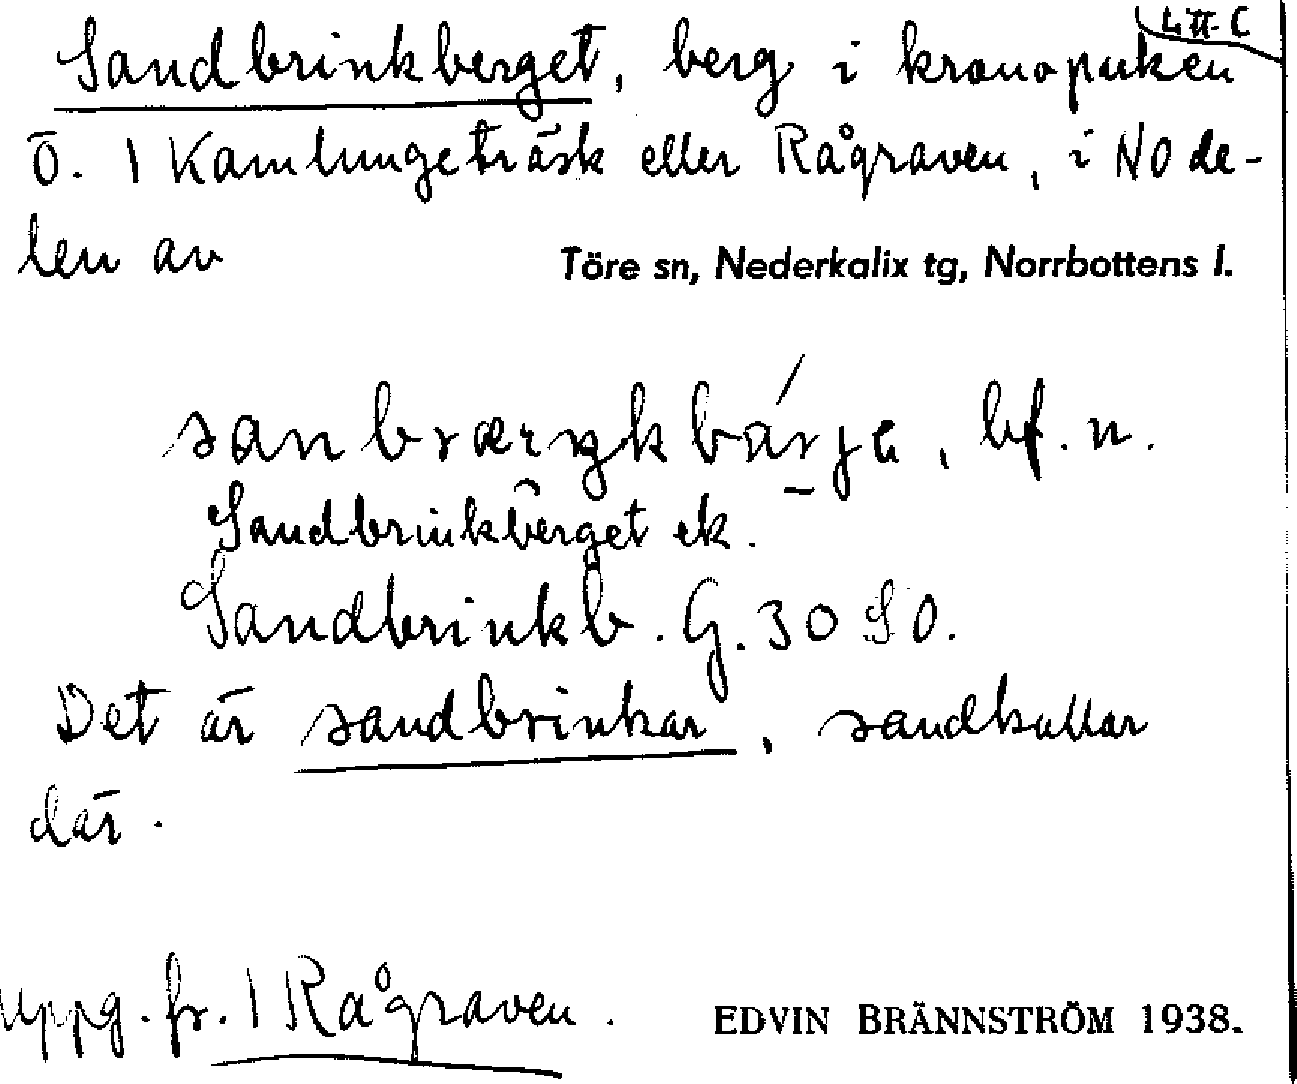 LII-C
Sandbrinkberget, berg i kronoparken
Ö. 1 Kamlungeträsk eller Rågraven, i NO de-
len av Töre sn, Nederkalix tg, Norrbottens l.
bf. n.
Sandbrinkberget ek.
Sandbrinkb. G. 30 SO.
Det är sandbrinkar, sandkullar
där.
Uppg. fr. 1 Rågraven. EDVIN BRÄNNSTRÖM 1938.